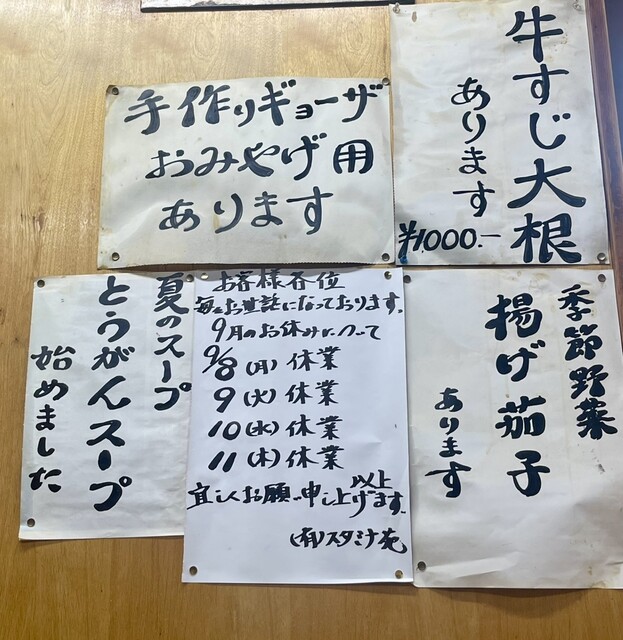 手作りギョーザ
おみやげ用
あります
牛すじ大根
あります
¥1000.-
夏のスープ
とうがんスープ
始めました
お客様各位
毎々お世話になっております。
9月のお休みについて
9/8(月)休業
9(火)休業
10(水)休業
11(木)休業
以上
宜しくお願い申し上げます。
(有)スタミナ苑
季節野菜
揚げ茄子
あります